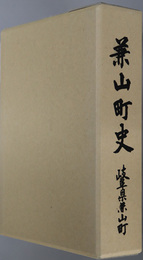 兼山町史
岐阜県兼山町